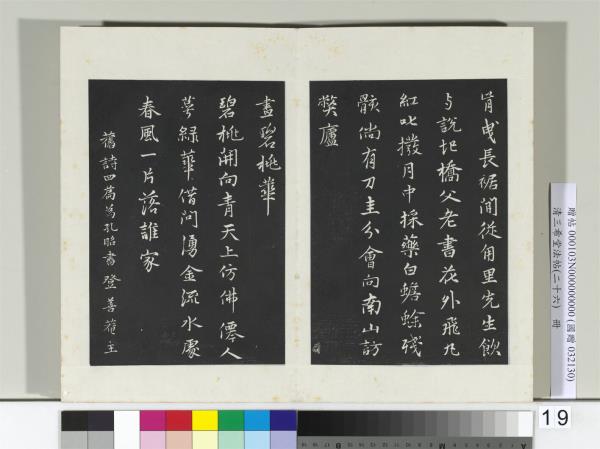 肯曳長裾間從甪里先生飲
與說圯橋父老書花外飛丸
紅叱撥月中採藥白蟾蜍殘
骸倘有刀圭分會向南山訪
獘廬
畫碧桃華
碧桃開向青天上仿佛僊人
萼綠華借問湧金流水處
春風一片落誰家
舊詩四篇為孔昭書登善菴主
贈帖 000103N000000000 (國贈 032130)
清三希堂法帖(二十六) 冊
19